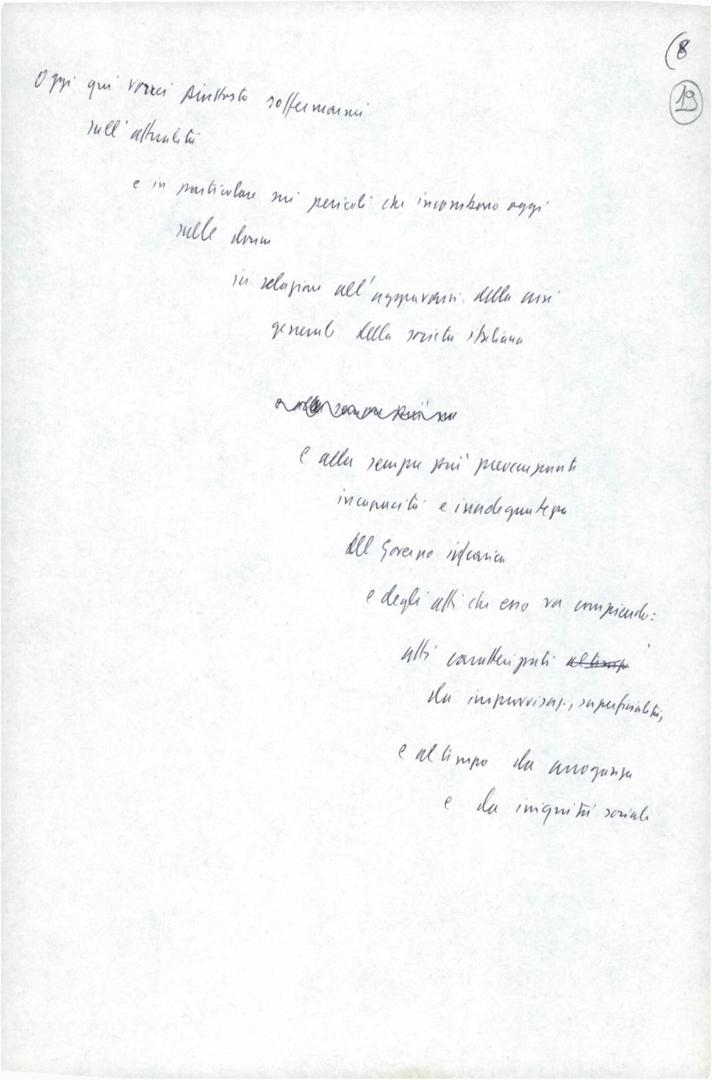 (8
19
Oggi qui vorrei piuttosto soffermarmi
sull'attualità
e in particolare sui pericoli che incombono oggi
sulle donne
in relazione all'aggravarsi della crisi
generale della società italiana
e alla sempre più preoccupante
incapacità e inadeguatezza
del Governo in carica
e degli atti che esso va compiendo:
atti caratterizzati al tempo
da improvvisaz., superficialità,
e al tempo da arroganza
e da iniquità sociale